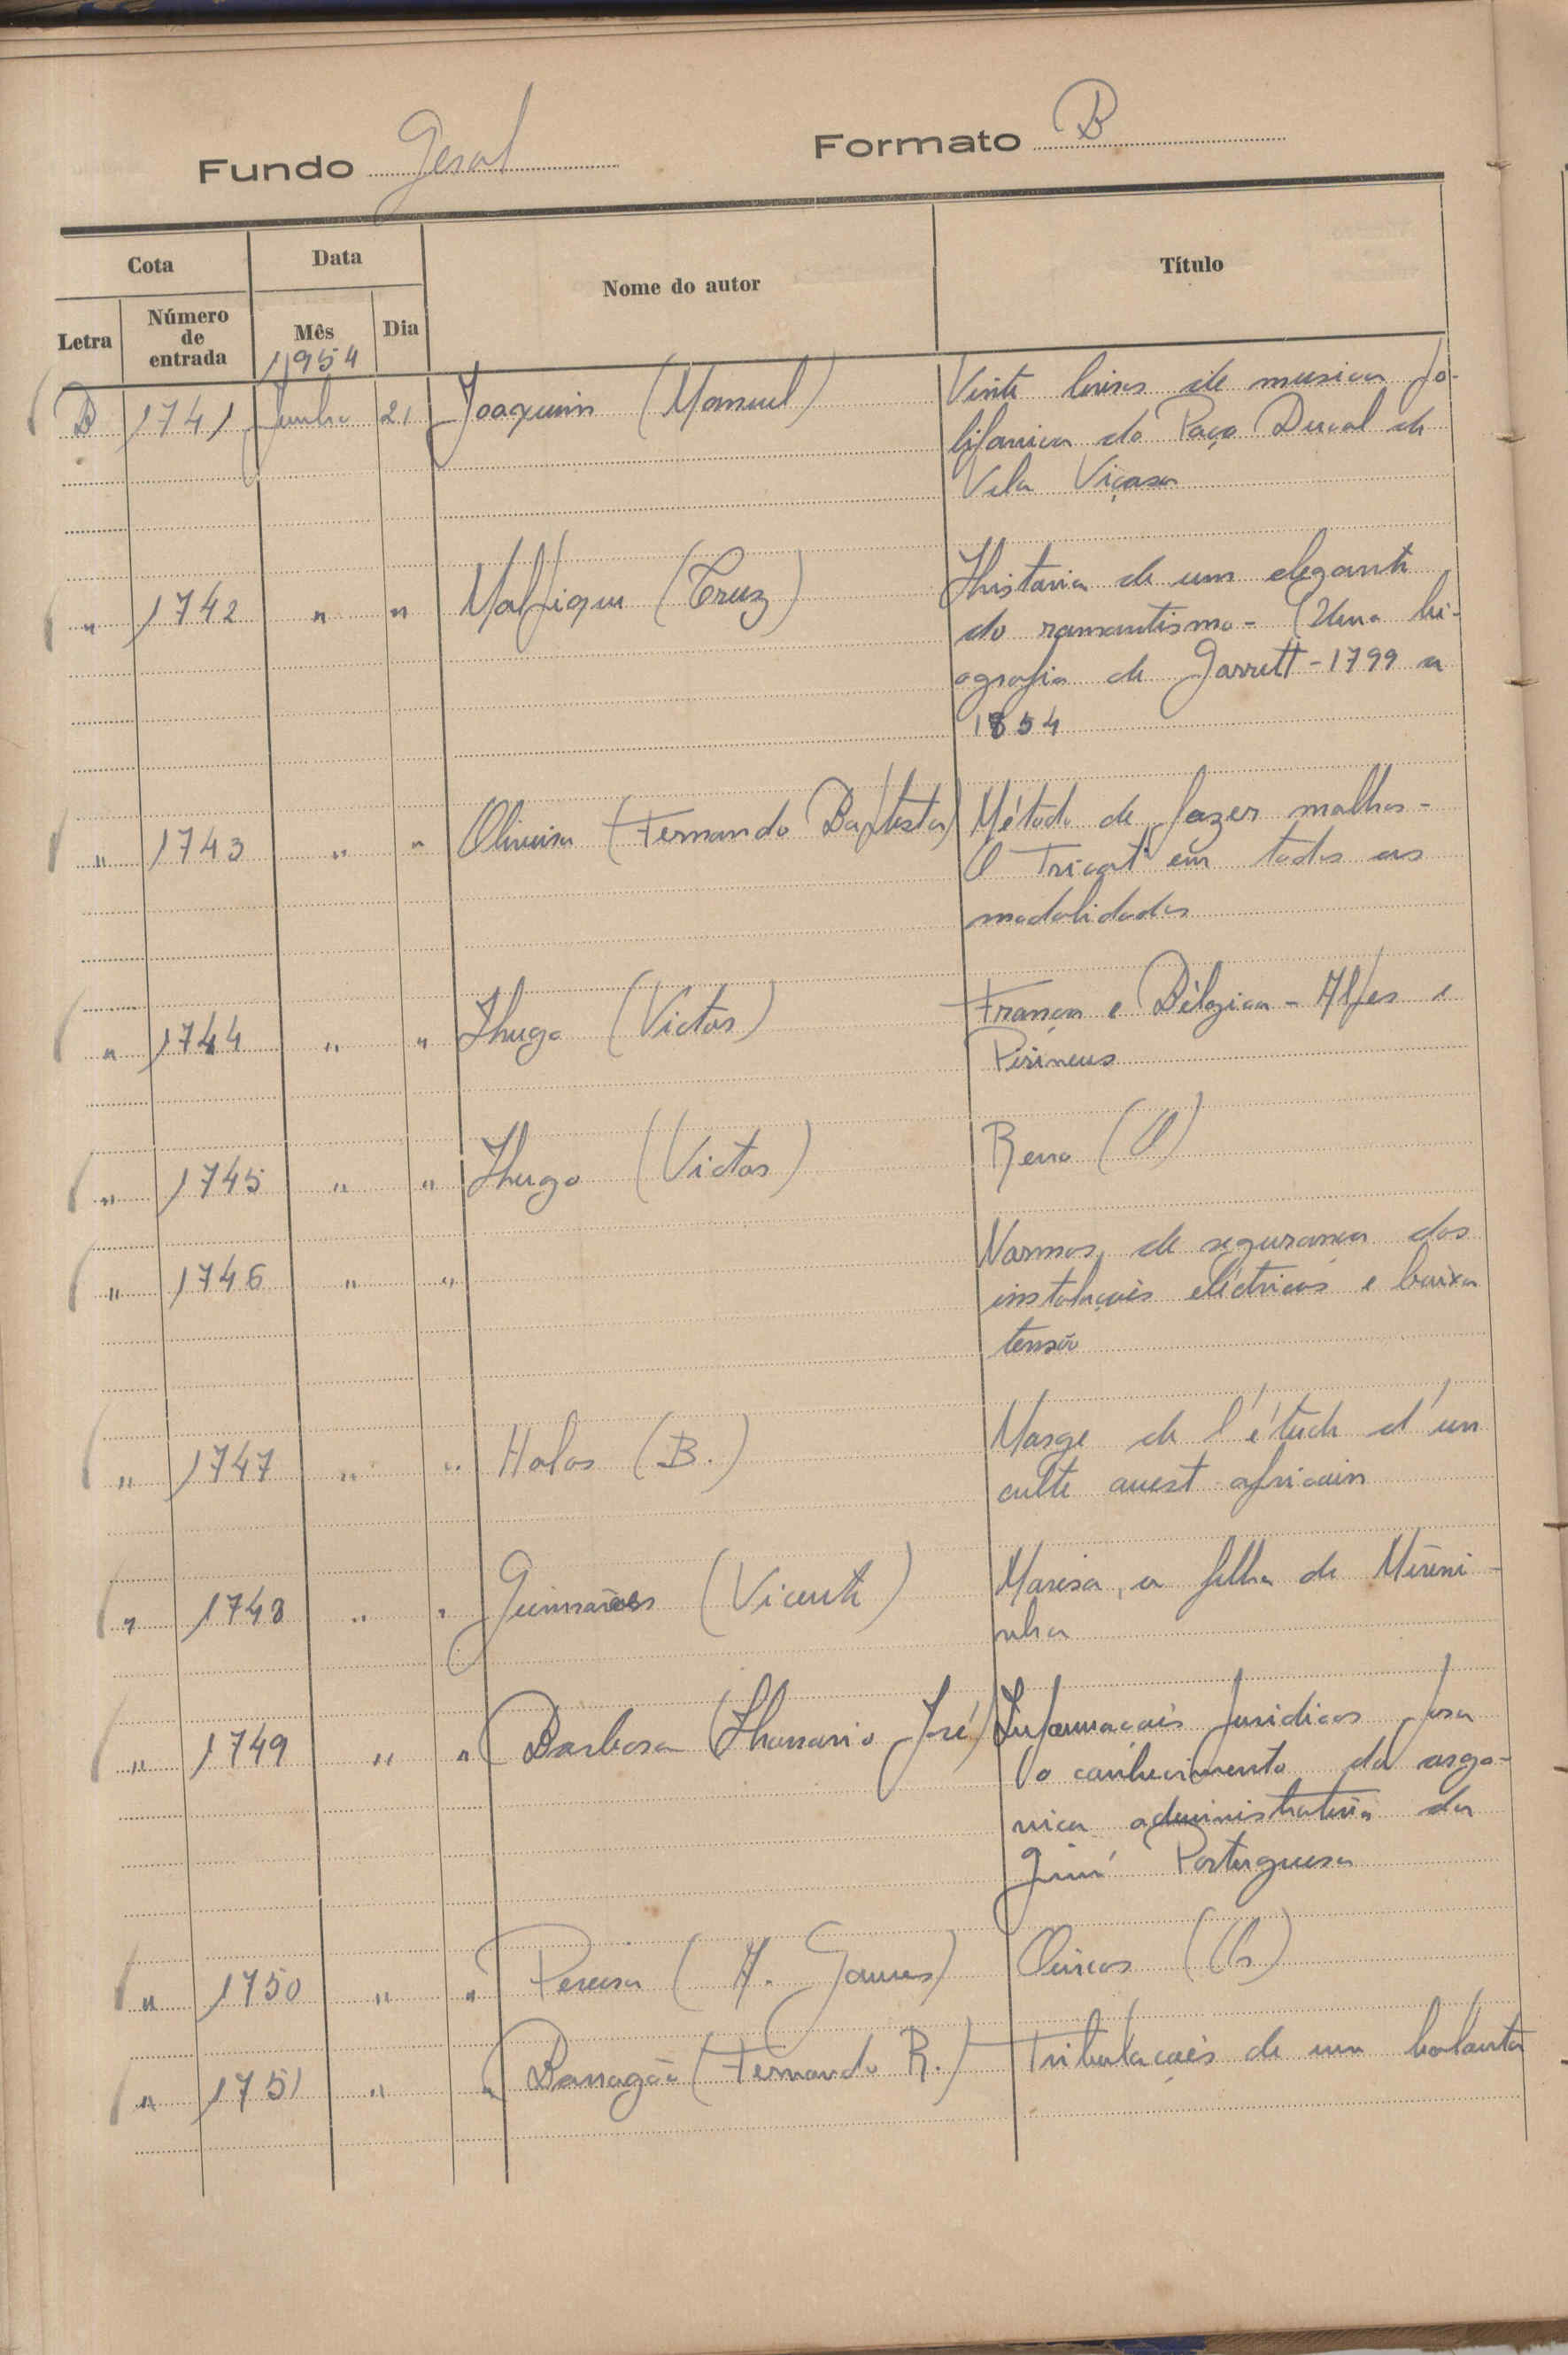 Fundo Geral Formato B
Cota Data Nome do autor Título
Letra Número de entrada Mês Dia
1954
B 1741 Junho 21 Joaquim (Manuel) Vinte livros de musica po-
lifonica do Paço Ducal de
Vila Viçosa
" 1742 " " Malpique (Cruz) Historia de um elegante
do romantismo - (Uma bi-
ografia de Garrett - 1799 a
1854
" 1743 " " Oliveira (Fernando Baptista) Método de fazer malhas -
O Tricot em todas as
modalidades
" 1744 " " Hugo (Victor) França e Bélgica - Alpes e
Pirineus
" 1745 " " Hugo (Victor) Reno (O)
" 1746 " " Normas de segurança das
instalações eléctricas e baixa
tensão
" 1747 " " Holas (B.) Marge de l'étude d'un
culte ouest africain
" 1748 " " Guimarães (Vicente) Marisa, a filha de Mireni-
nha
" 1749 " " Barbosa (Honorio José) Informações Juridicas para
o conhecimento da orgâ-
nica administrativa da
Guiné Portuguesa
" 1750 " " Pereira (A. Gomes) (Os)
" 1751 " " Barragão (Fernando R.) Tribulações de um balanta